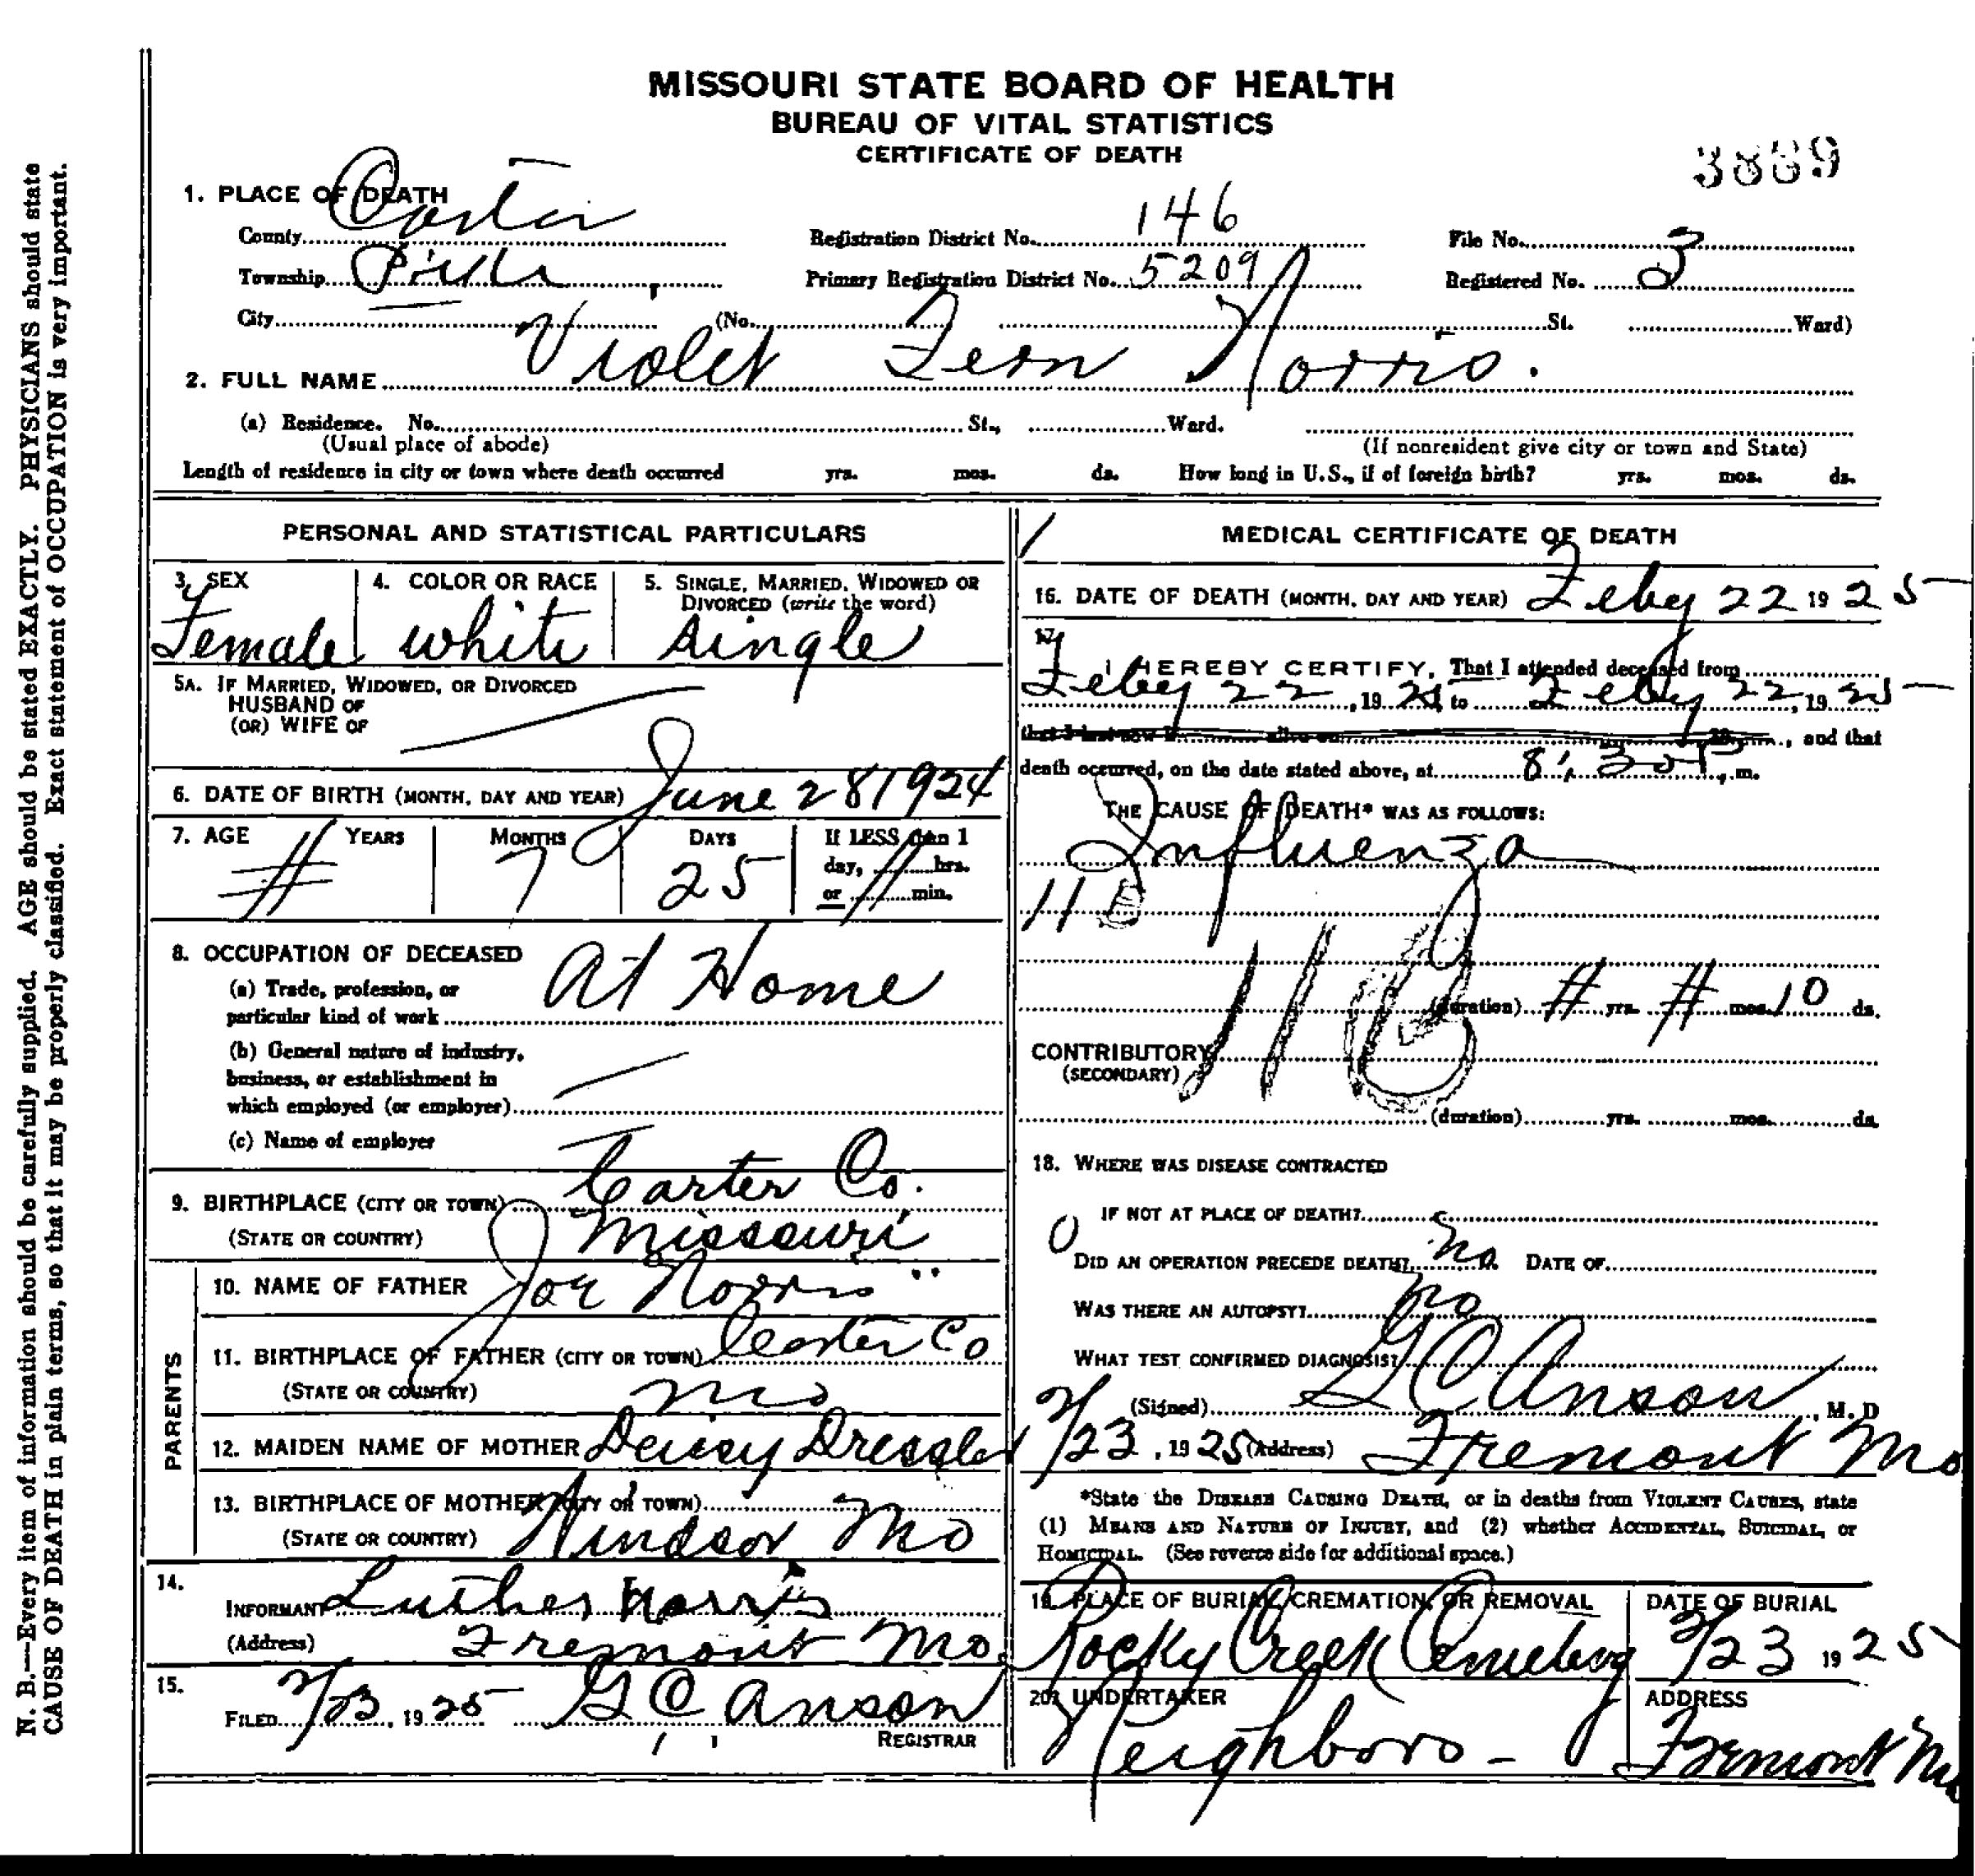 MISSOURI STATE BOARD OF HEALTH
BUREAU OF VITAL STATISTICS
CERTIFICATE OF DEATH
3889
1. PLACE OF DEATH
County Carter Registration District No. 146 File No. 3
Township Primary Registration District No. 5209 Registered No.
City (No. St. Ward)
2. FULL NAME Violet Fern Norris.
(a) Residence. No. St., Ward.
(Usual place of abode) (If nonresident give city or town and State)
Length of residence in city or town where death occurred yrs. mos. ds. How long in U.S., if of foreign birth? yrs. mos. ds.
PERSONAL AND STATISTICAL PARTICULARS
3. SEX 4. COLOR OR RACE 5. SINGLE, MARRIED, WIDOWED OR
DIVORCED (write the word)
Female white single
5A. IF MARRIED, WIDOWED, OR DIVORCED
HUSBAND OF
(OR) WIFE OF
6. DATE OF BIRTH (MONTH, DAY AND YEAR) June 28 1924
7. AGE YEARS MONTHS DAYS If LESS than 1
day, hrs.
7 25 or min.
8. OCCUPATION OF DECEASED
(a) Trade, profession, or
particular kind of work At Home
(b) General nature of industry,
business, or establishment in
which employed (or employer)
(c) Name of employer
9. BIRTHPLACE (CITY OR TOWN) Carter Co.
(STATE OR COUNTRY) Missouri
PARENTS
10. NAME OF FATHER Joe Norris
11. BIRTHPLACE OF FATHER (CITY OR TOWN) Carter Co
(STATE OR COUNTRY) Mo
12. MAIDEN NAME OF MOTHER Deisy Dressler
13. BIRTHPLACE OF MOTHER (CITY OR TOWN)
(STATE OR COUNTRY) Windsor Mo
14.
INFORMANT Luther Norris
(Address) Fremont Mo.
15.
FILED 2/23, 1925 G C Anson
REGISTRAR
MEDICAL CERTIFICATE OF DEATH
16. DATE OF DEATH (MONTH, DAY AND YEAR) Feby 22 1925
17.
I HEREBY CERTIFY, That I attended deceased from
Feby 22, 1925, to Feby 22, 1925
that I last saw h alive on 19, and that
death occurred, on the date stated above, at 8:30 P, m.
THE CAUSE OF DEATH* WAS AS FOLLOWS:
Influenza
11B
11B
(duration) yrs. mos. 10 ds.
CONTRIBUTORY
(SECONDARY)
(duration) yrs. mos. ds.
18. WHERE WAS DISEASE CONTRACTED
IF NOT AT PLACE OF DEATH?
DID AN OPERATION PRECEDE DEATH? No DATE OF
WAS THERE AN AUTOPSY? No
WHAT TEST CONFIRMED DIAGNOSIS?
(Signed) G C Anson, M. D
2/23, 1925 (Address) Fremont Mo
*State the DISEASE CAUSING DEATH, or in deaths from VIOLENT CAUSES, state
(1) MEANS AND NATURE OF INJURY, and (2) whether ACCIDENTAL, SUICIDAL, or
HOMICIDAL. (See reverse side for additional space.)
19. PLACE OF BURIAL, CREMATION, OR REMOVAL DATE OF BURIAL
Rocky Creek Cemetery 2/23 1925
20. UNDERTAKER ADDRESS
Neighbors - Fremont Mo
N. B.—Every item of information should be carefully supplied. AGE should be stated EXACTLY. PHYSICIANS should state
CAUSE OF DEATH in plain terms, so that it may be properly classified. Exact statement of OCCUPATION is very important.